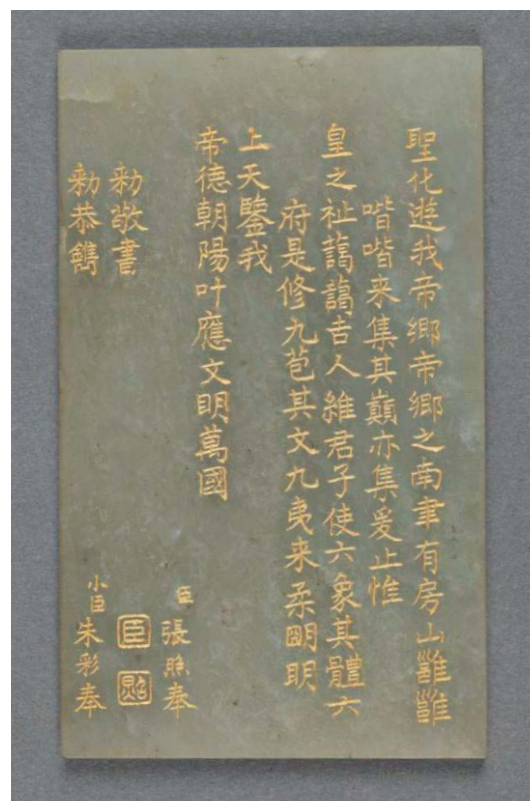 聖化遊我帝鄉帝鄉之南聿有房山雝雝
喈喈来集其巔亦集爰止惟
皇之祉藹藹吉人維君子使六象其體六
府是修九苞其文九夷来柔朙明
上天鑒我
帝德朝陽叶應文明萬國
臣張照奉
勅敬書
臣
照
小臣朱彩奉
勅恭鐫